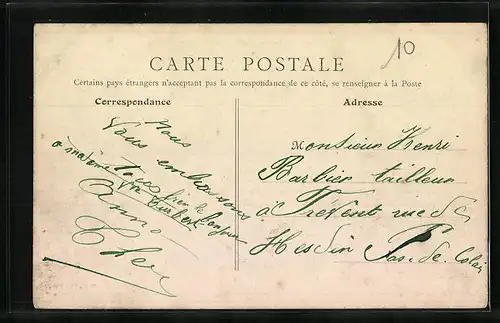 10
CARTE POSTALE
Certains pays étrangers n'acceptant pas la correspondance de ce côté, se renseigner à la Poste
Correspondance
Adresse
Nous
Vous embrassons
Tous
Anna
Monsieur Henri
Barbier tailleur
à Frévent rue de
Hesdin Pas. de. Calais